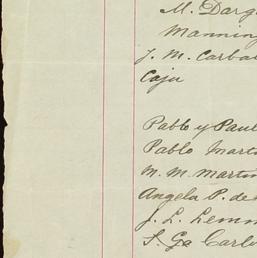 M. Darg
Manning
J. M. Carba
Caju
Pablo y Paul
Pablo Mart
N. M. Martin
Angela P. de
J. L. Lemm
S. Ga Carlo